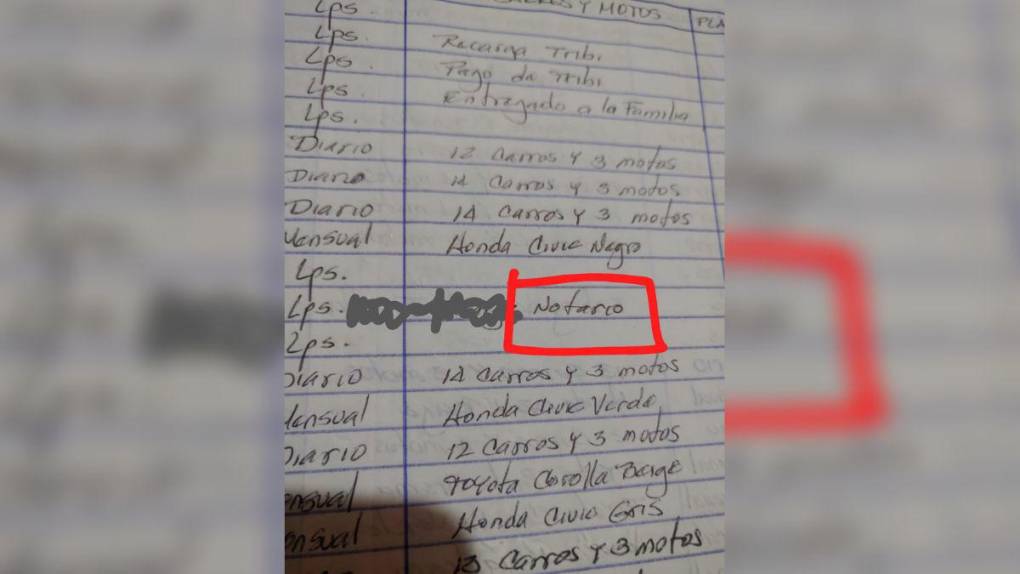 Lps. CARROS Y MOTOS PLA
Lps.
Lps. Recarga Tribi.
Lps. Pago de Tribi.
Lps. Entregado a la Familia
Diario 12 Carros y 3 motos
Diario 14 Carros y 3 motos
Diario 14 Carros y 3 motos
Mensual Honda Civic Negro
Lps.
Lps. Notario
Lps.
Diario 14 Carros y 3 motos
Mensual Honda Civic Verde
Diario 12 Carros y 3 motos
ensual Toyota Corolla Beige
ensual Honda Civic Gris
13 Carros y 3 motos